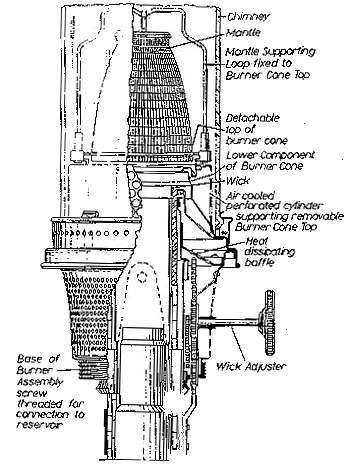 Chimney
Mantle
Mantle Supporting
Loop fixed to
Burner Cone Top
Detachable
top of
burner cone
Lower Component
of Burner Cone
Wick
Air cooled
perforated cylinder
supporting removable
Burner Cone Top
Heat
dissipating
baffle
Wick Adjuster
Base of
Burner
Assembly
screw
threaded for
connection to
reservoir